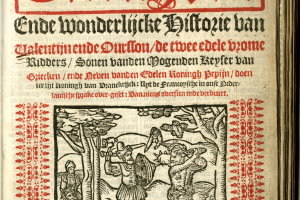 Ende wonderlijcke Historie van
Valentijn ende Oursson / de twee edele vrome
Ridders / Sonen vanden Mogenden Keyser van
Griecken / ende Neven vanden Edelen Koningh Pepijn / doen
ter tijt Koningh van Vranckrijck: Uyt de Francoysche in onse Neder-
landtsche sprake over-geset: Van nieus oversien ende verbetert.